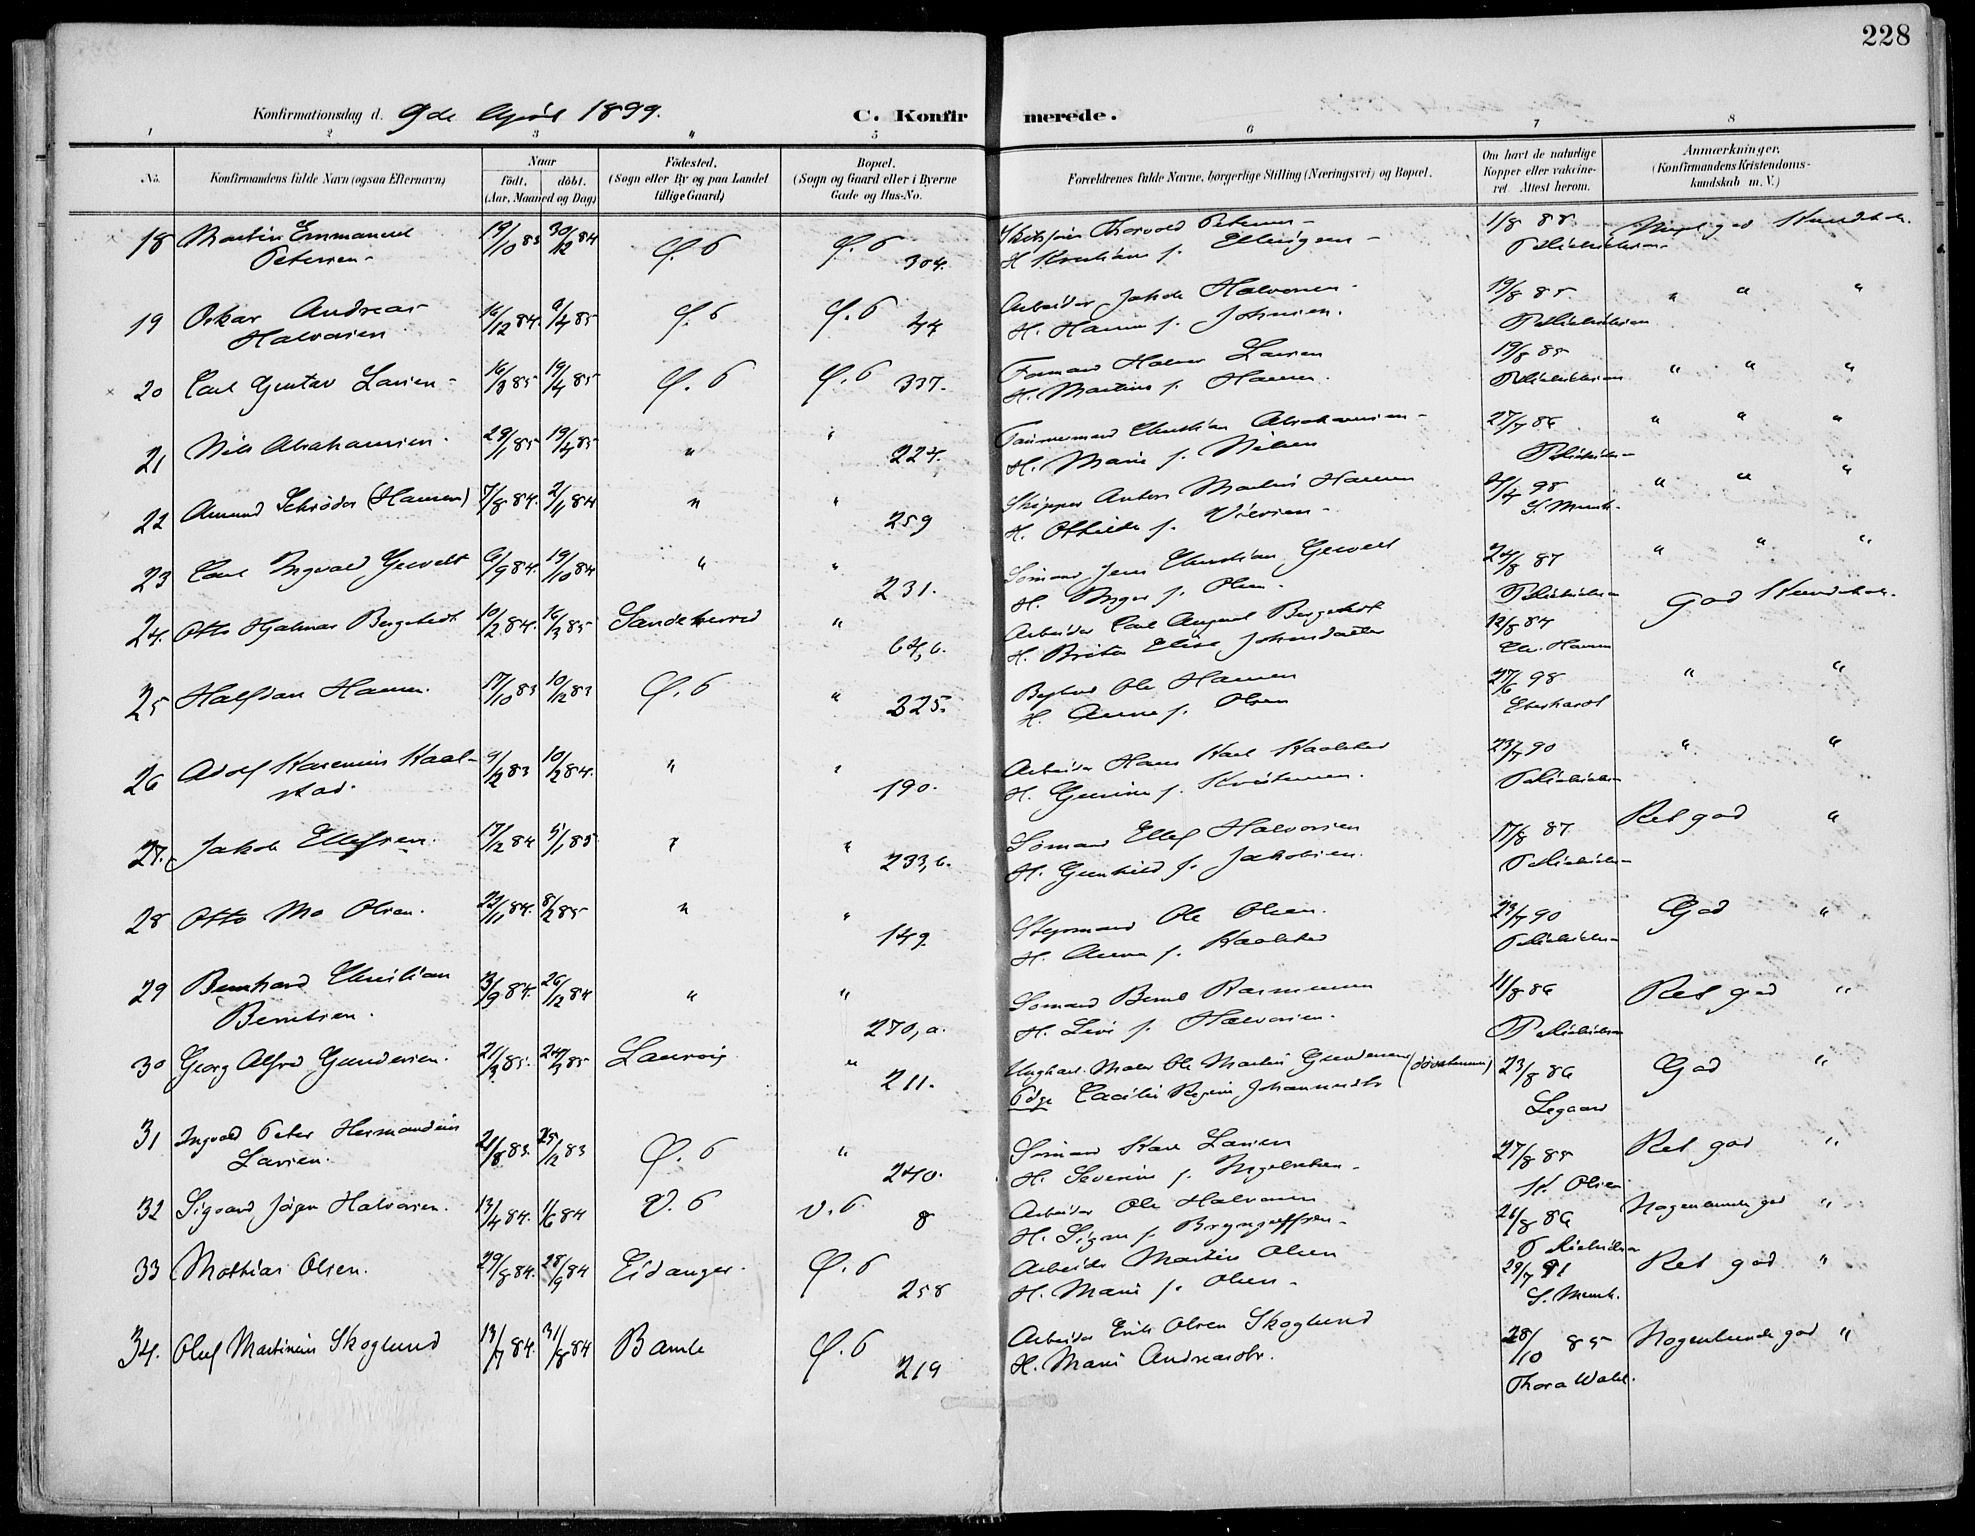 228
Konfirmationsdag d. 9de April 1899. C. Konfirmerede.
1 2 3 4 5 6 7 8
No. Konfirmandens fulde Navn (ogsaa Efternavn) Naar født, døbt. (Aar, Maaned og Dag) Fødested. (Sogn eller By og paa Landet tillige Gaard) Bopæl. (Sogn og Gaard eller i Byerne Gade og Hus-No. Forældrenes fulde Navne, borgerlige Stilling (Næringsvei) og Bopæl. Om havt de naturlige Kopper eller vaccineret. Attest herom. Anmærkninger. (Konfirmandens Kristendomskundskab m. V.)
18 Martin Emmanuel 19/10 83 30/12 84 Ø. 6 Ø. 6 304. Thorvald Petersen 1/8 88
Petersen H. f. Ellingsen
19 Oskar Andreas 16/12 84. 6/4 85 Ø. 6 Ø. 6 44 Arbeider Jakob Halvorsen 19/8 85 " " "
Halvorsen H. Hanna f. Johnsen.
20 Carl Gustav Larsen 16/3 85 19/4 85 Ø. 6 Ø. 6 337. Halvor Larsen 19/8 85 " " "
H. Martine f. Hansen.
21 Nils Abrahamsen. 29/1 85 19/4 85 " " 224. Tømmermand Christian Abrahamsen 27/7 86 " " "
H. Marie f. Nilsen
22 Amund Schrøder (Hansen) 7/8 84. 2/11 84 " " 259 Skipper Anders Martin Hansen 4/4 98 " " "
H. Othilde f. S. Munk.
23 Carl Ingvald Gewelt 6/9 84. 19/10 84 " " 231. Sømand Jens Christian Gewelt 24/8 87 " " "
H. Inger f. Olsen.
24. Otto Hjalmar Bergstedt 10/2 84. 16/3 85 Sandeherred " 64,b. Arbeider Carl August Bergstedt 12/8 84 God Kundskab.
H. Brita Elise Johnsdatter Chr. Hansen
25 Halfdan Hansen. 17/10 83 10/12 83 Ø. 6 " 325. Ole Hansen 27/6 98 " "
H. Anne f. Olsen Eberhardt
26 Adolf Karenius Kaal- 9/12 83 10/2 84. " " 190. Arbeider Hans Karl Kaalstad 23/7 90 " "
stad. H. Gurine f.
27. Jakob Ellefsen. 17/12 84 5/1 85 " " 233,b. Sømand Ellef Halvorsen 17/8 87. Ret god "
H. Gunhild f. Jakobsen.
28 Otto Mo Olsen. 22/11 84. 8/2 85 " " 149. Styrmand Ole Olsen. 23/7 90 God "
H. Anna f. Kaalstad
29 Bernhard Christian 3/9 84. 26/12 84 " " 270,a. Sømand Bernt Rasmussen 11/8 86 Ret god "
Berntsen. H. Livi f. Halvorsen.
30 Georg Alfred Gundersen. 21/3 85. 24/5 85 Laurvig. " 211. Ungkarl. Maler Ole Martin Gundersen (døvstumme) 23/8 86 God "
Pige Cecilie Regine Johannesdtr Legaard
31 Ingvald Peter Hermandius 21/8 83. 25/12 83 Ø. 6 " 240. Sømand Karl Larsen 27/8 85 Ret god "
Larsen. H. Severine f. Ingebretsen K. Olsen
32 Sigvard Jørgen Halvorsen. 13/4 84. 1/6 84 V. 6 V. 6 8 Arbeider Ole Halvorsen 26/8 86 Nogenlunde god "
H. Signe f. Bryngelfsen
33 Mathias Olsen. 29/8 84. 28/9 84 Eidanger. Ø. 6 258 Arbeider Martin Olsen 29/7 91 Ret god "
H. Marie f. Olsen S. Munk.
34. Oluf Martinius Skoglund 13/7 84. 31/8 84 Bamle Ø. 6 219 Arbeider Erik Olsen Skoglund 28/10 85 Nogenlunde god "
H. Marie Andreasdtr. Thora Wahl.